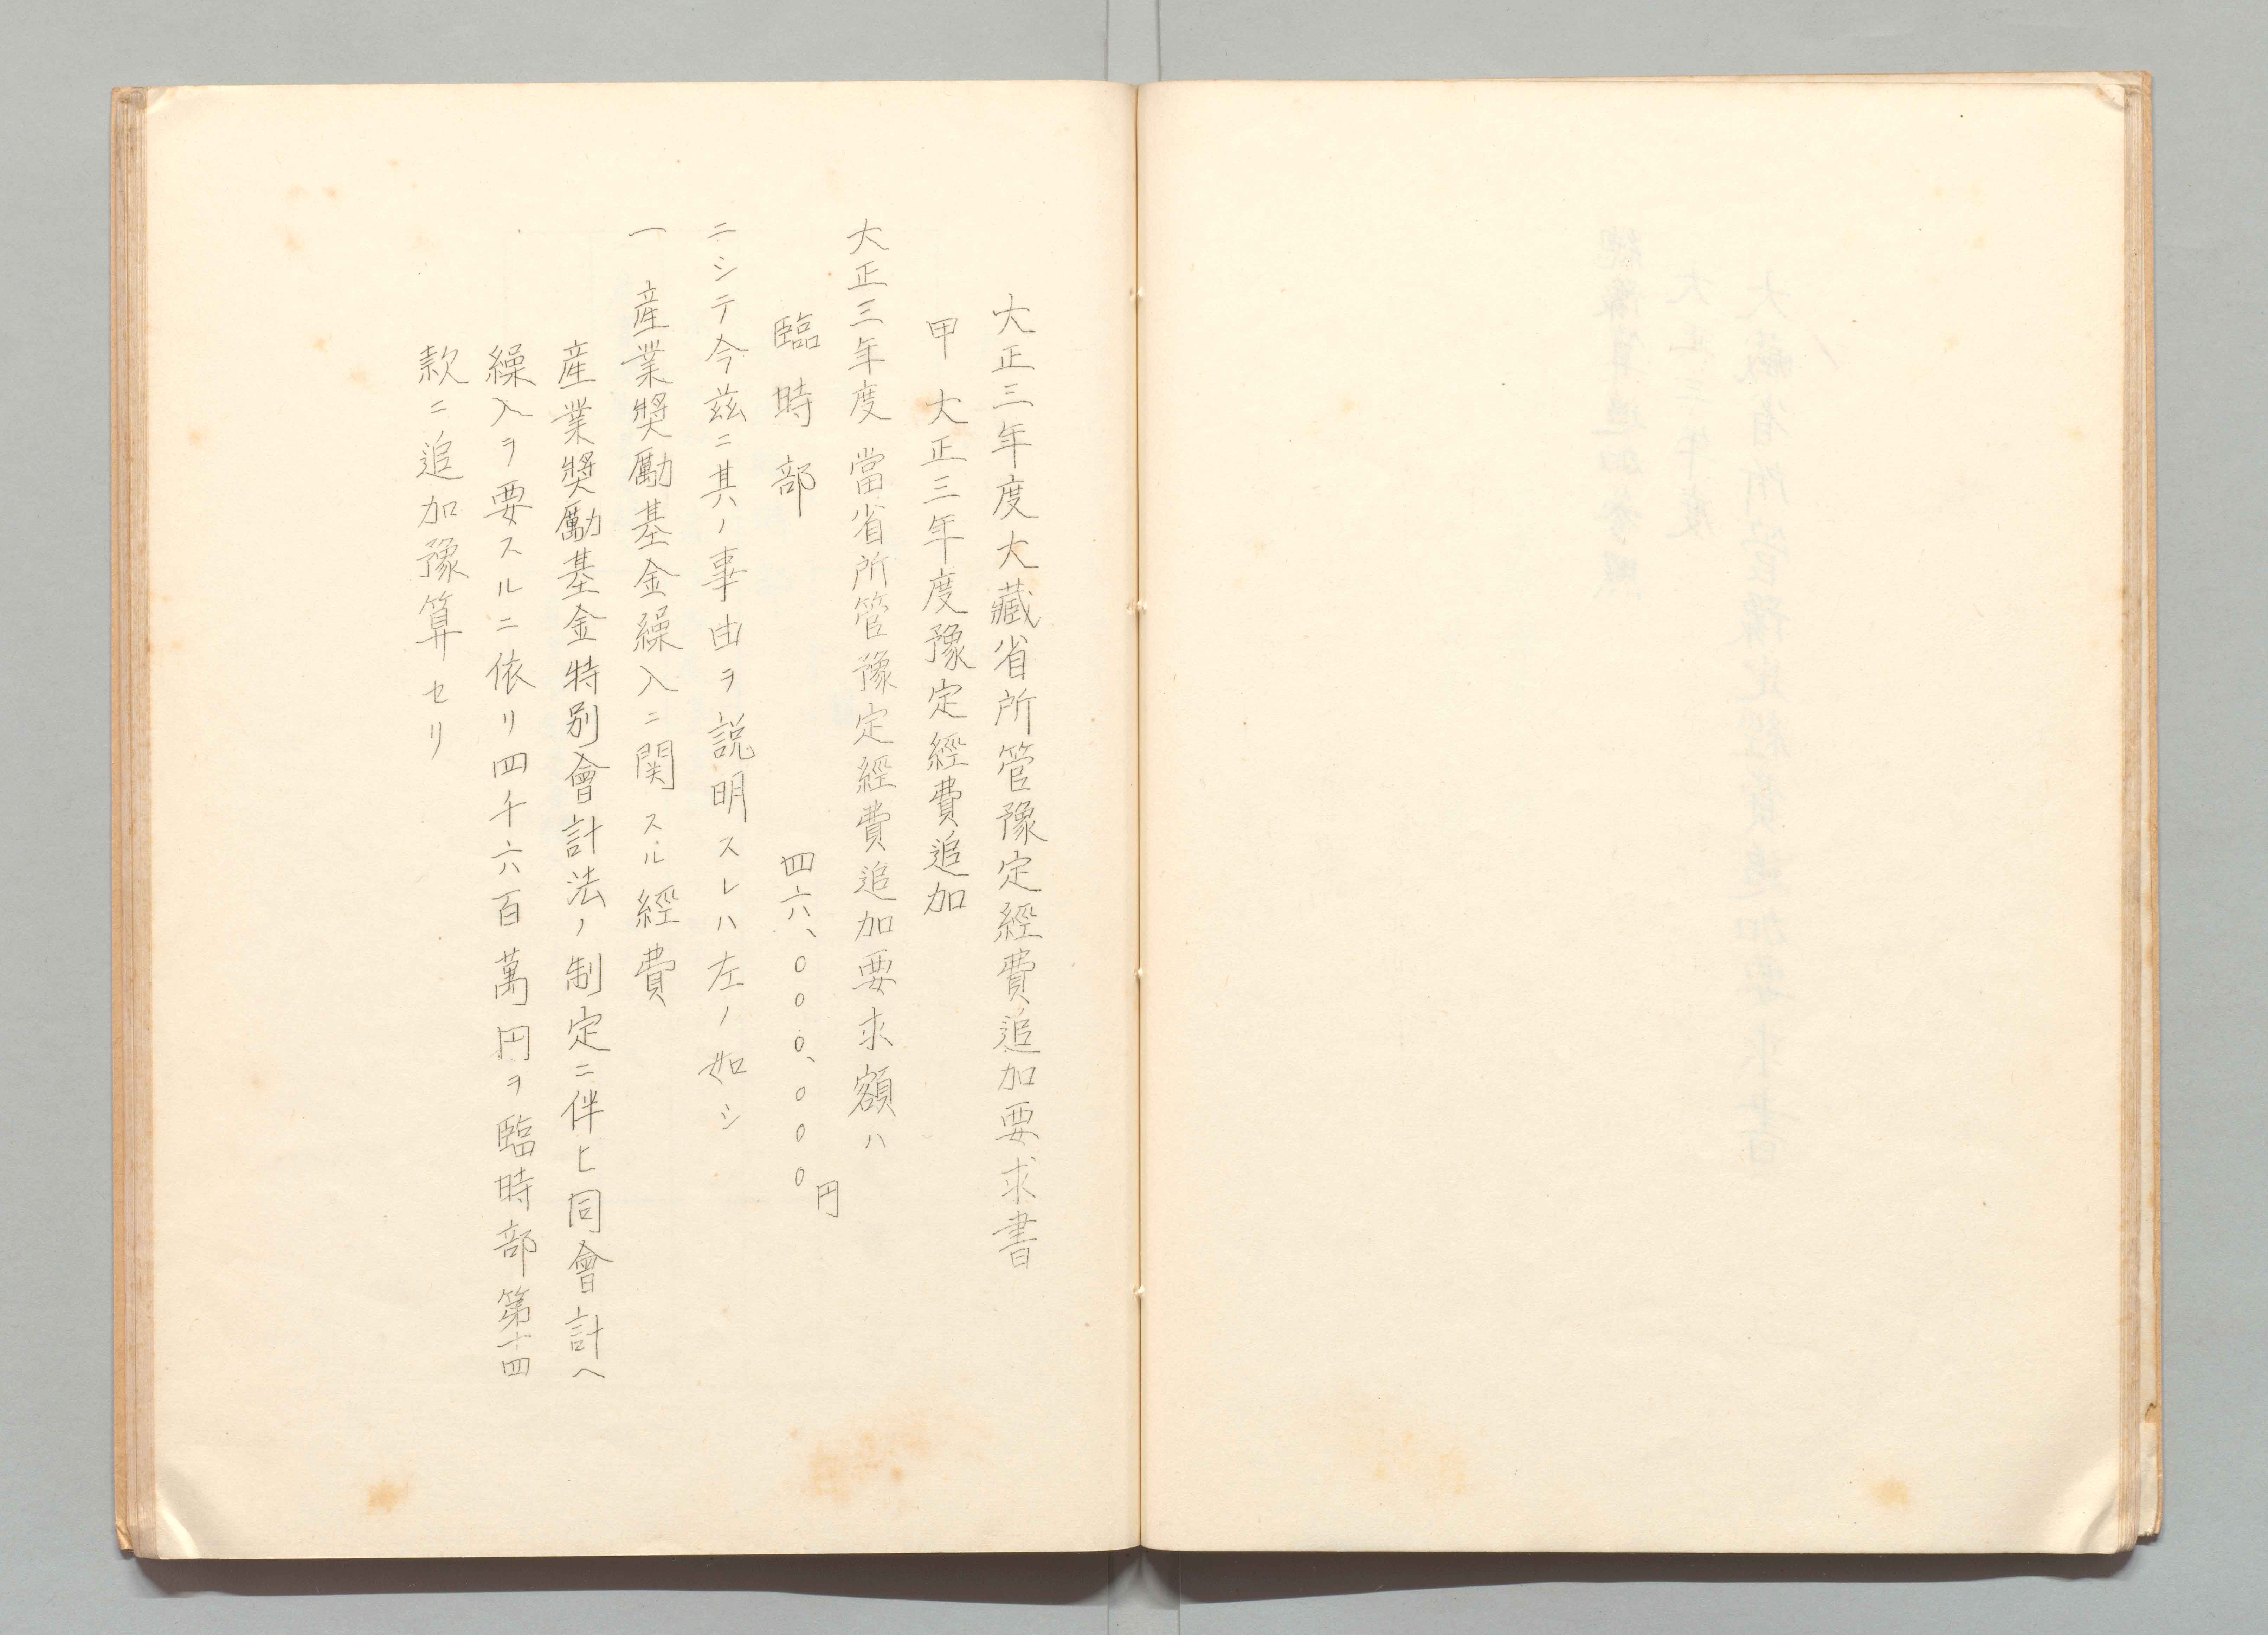 大正三年度大藏省所管豫定經費追加要求書
甲 大正三年度豫定經費追加
大正三年度當省所管豫定經費追加要求額ハ
臨時部 四六、〇〇〇、〇〇〇円
ニシテ今茲ニ其ノ事由ヲ説明スレハ左ノ如シ
一 産業奬勵基金繰入ニ関スル經費
産業奬勵基金特別會計法ノ制定ニ伴ヒ同會計ヘ
繰入ヲ要スルニ依リ四千六百萬円ヲ臨時部第十四
款ニ追加豫算セリ